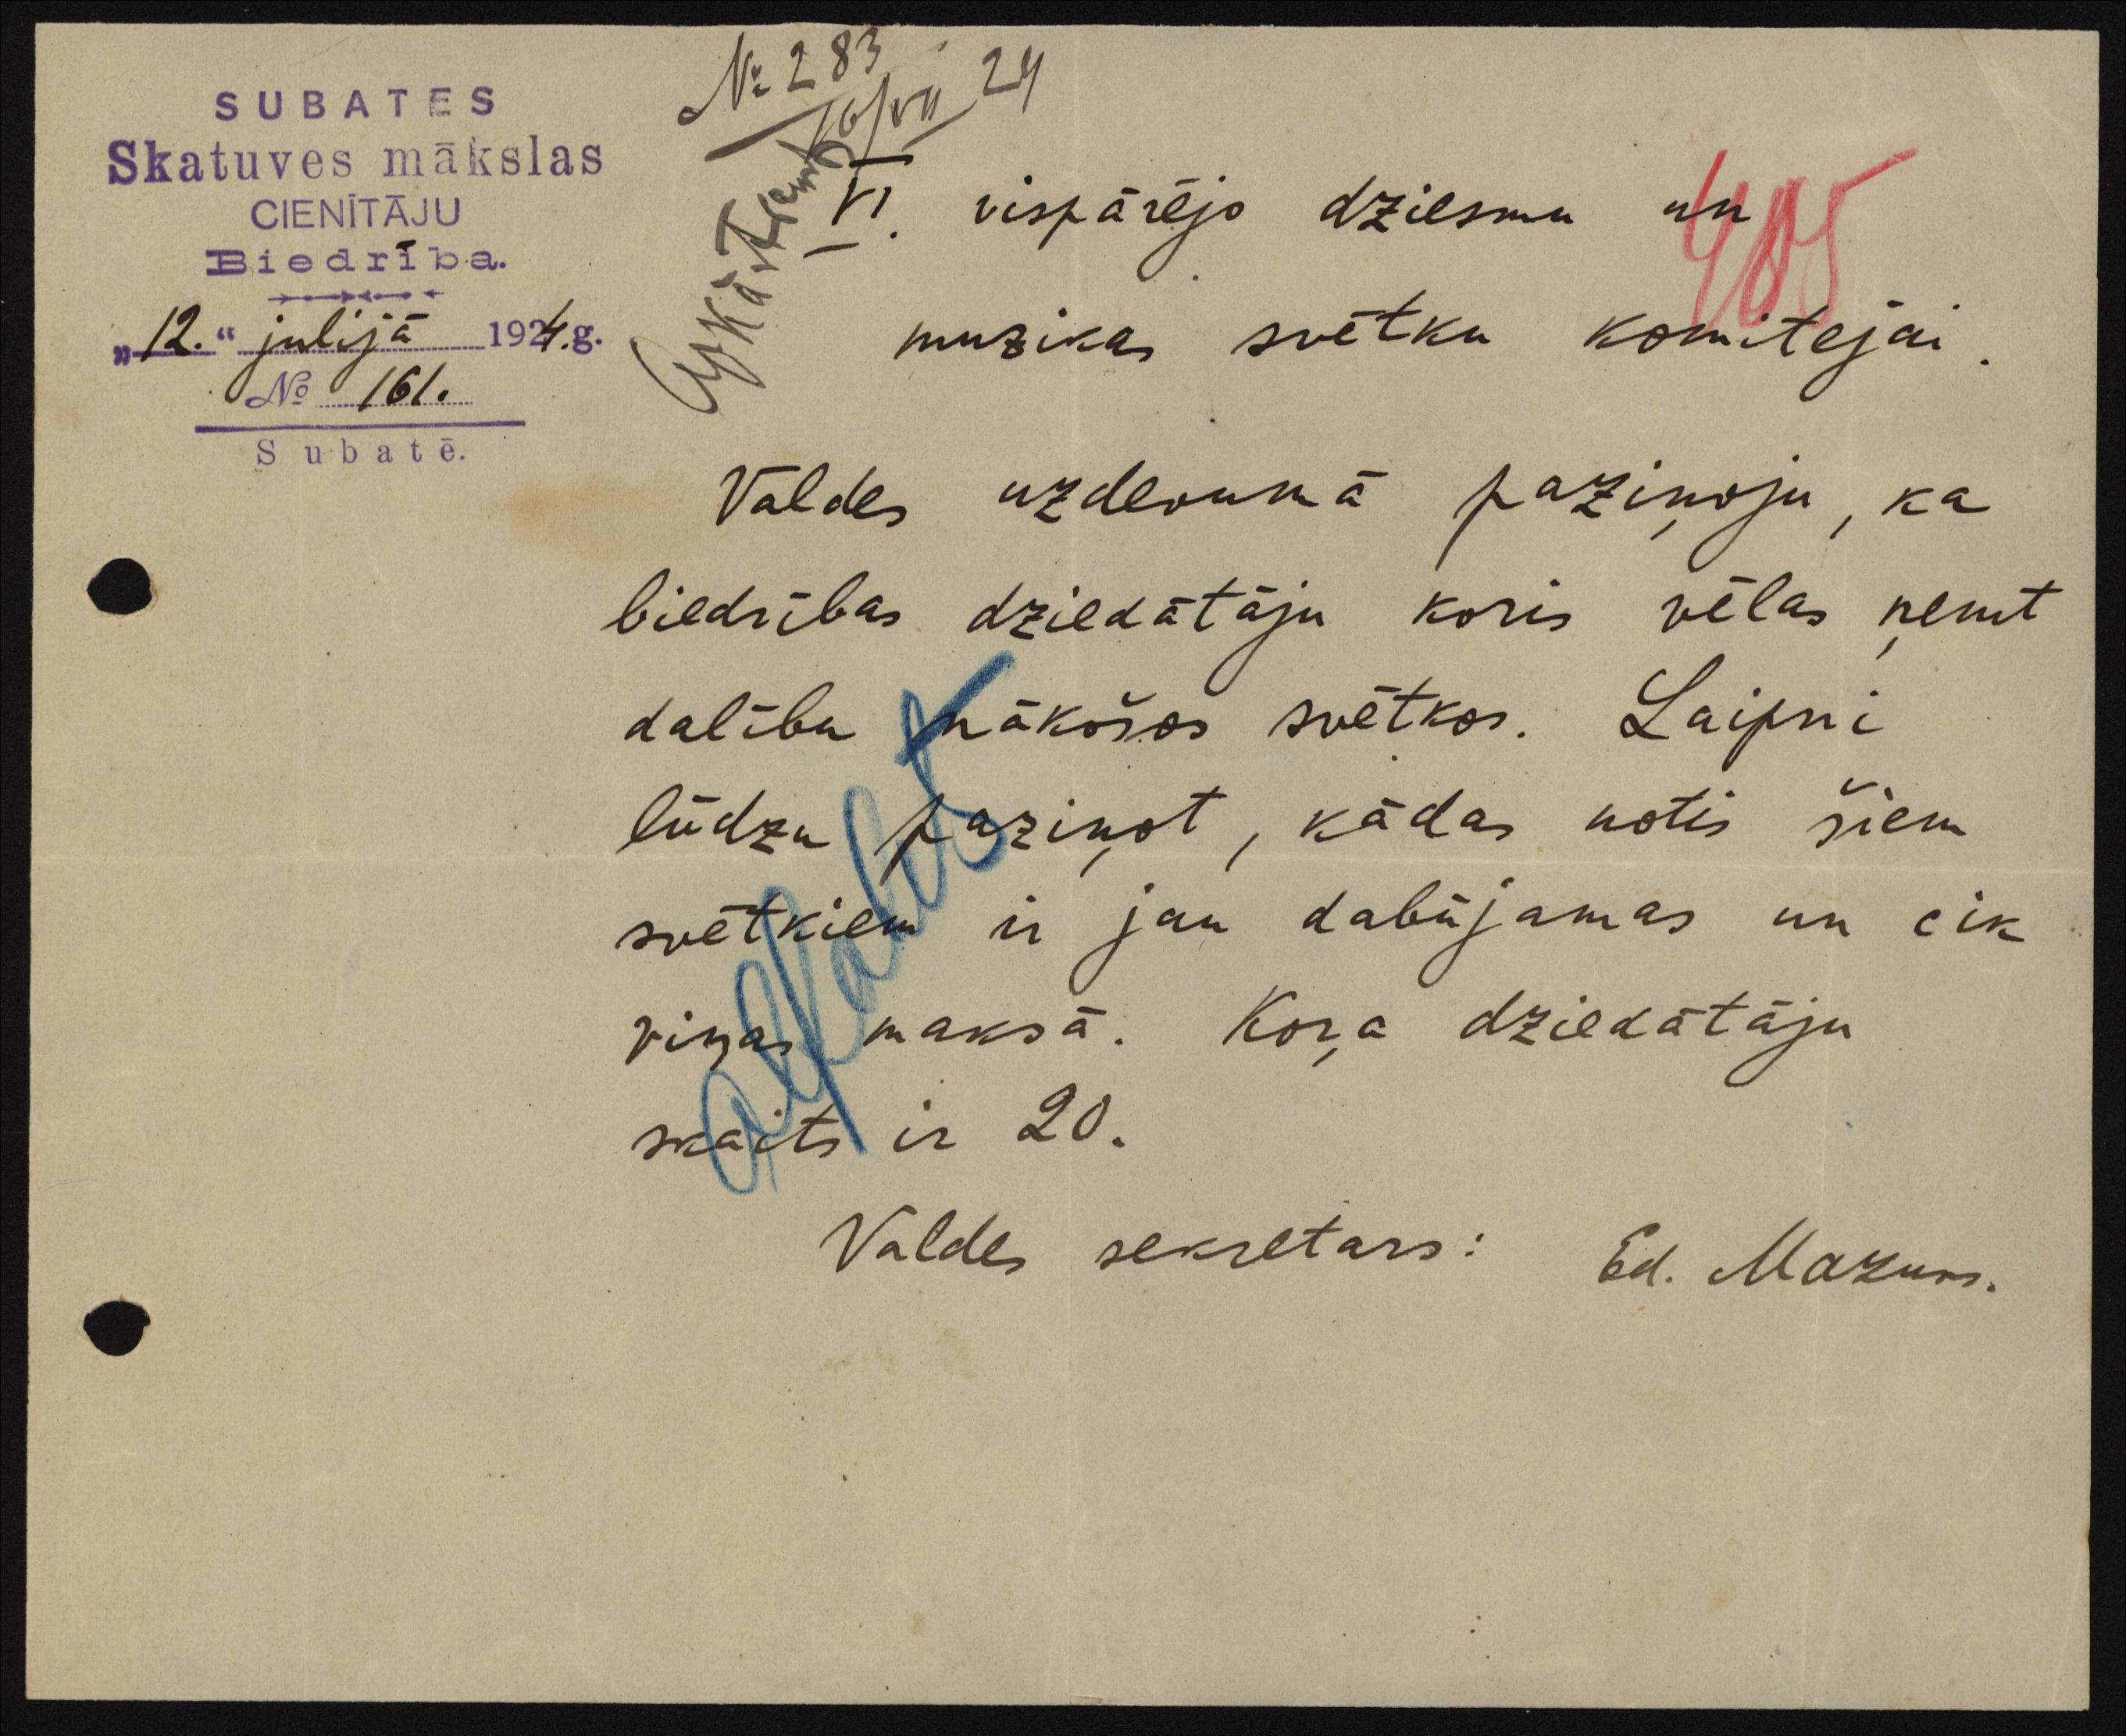 SUBATES
Skatuves mākslas
CIENĪTĀJU
Biedrība.
„12.“ julijā 1924.g.
№ 161.
Subatē.
№ 283
16/VII 24
405
VI. vispārējo dziesmu un
muzikas svētku komitejai.
Valdes uzdevumā paziņoju, ka
biedrības dziedātāju koris vēlas ņemt
dalību nākošos svētkos. Laipni
lūdzu paziņot, kādas notis šiem
svētkiem ir jau dabūjamas un cik
viņas maksā. Koŗa dziedātāju
skaits ir 20.
Valdes sekretars: Ed. Mazurs.